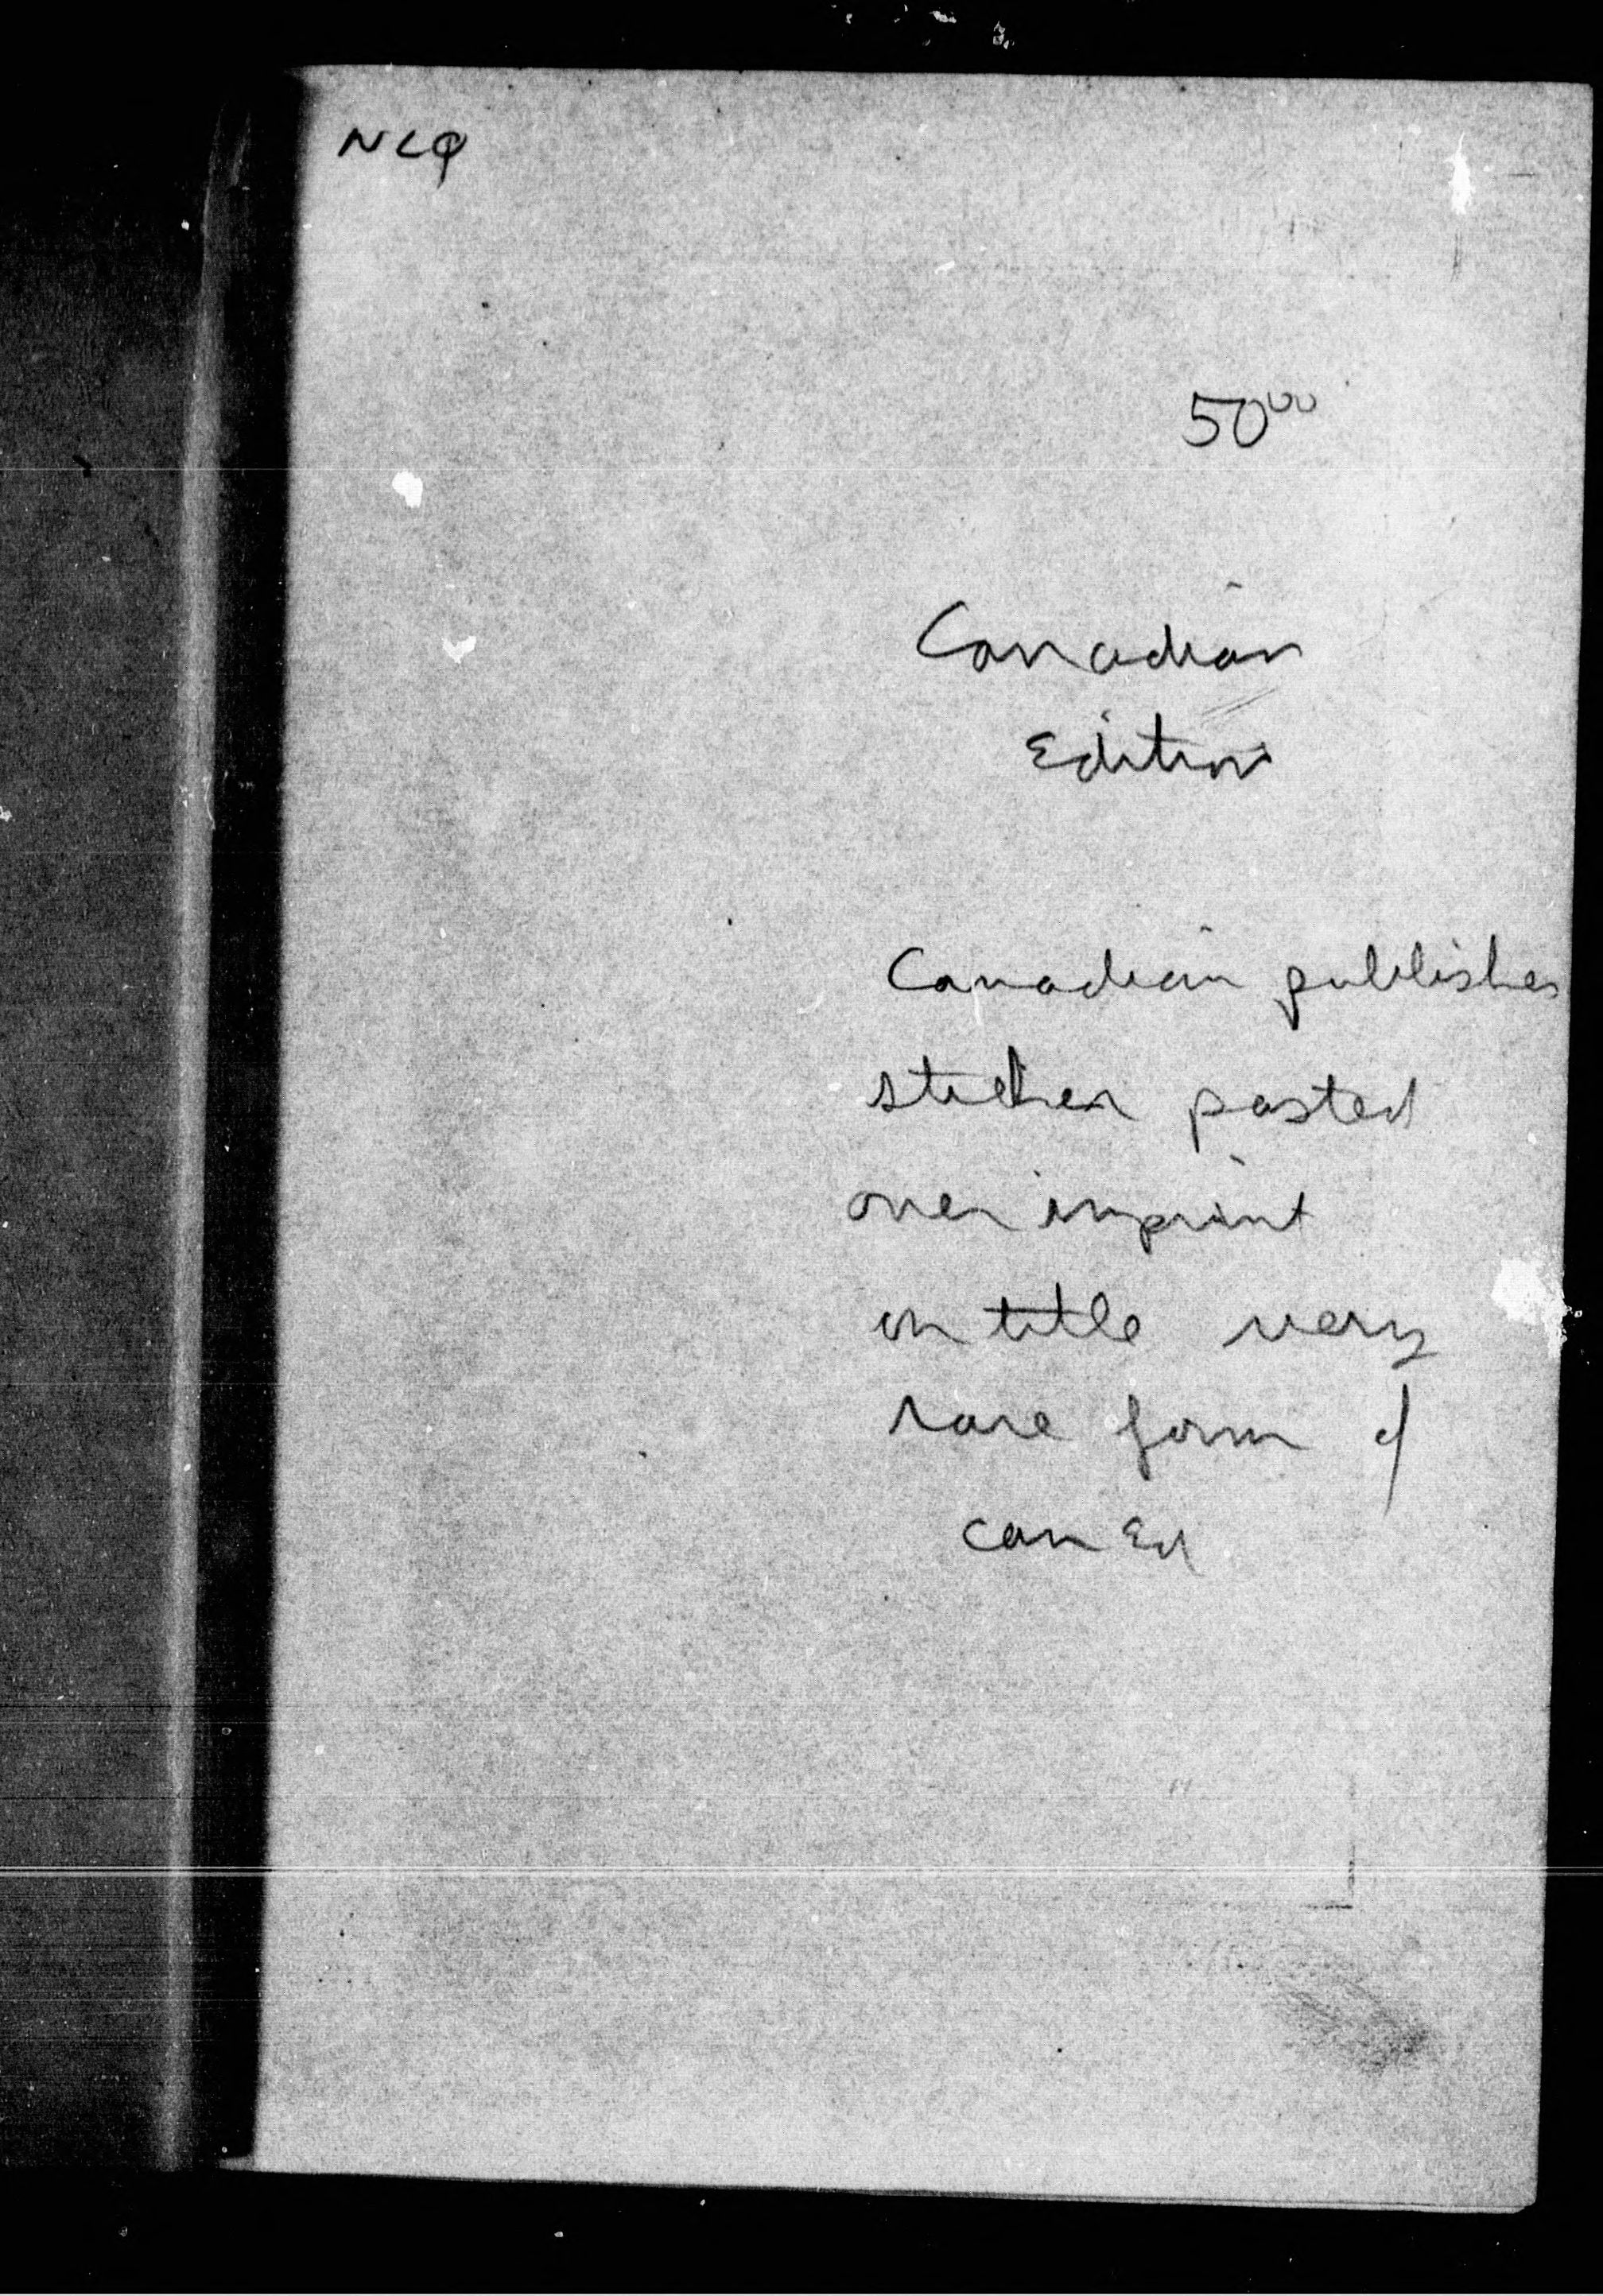 NLQ
50⁰⁰
Canadian
Edition
Canadian publisher
sticker pasted
over imprint
on title very
rare form of
can Ed